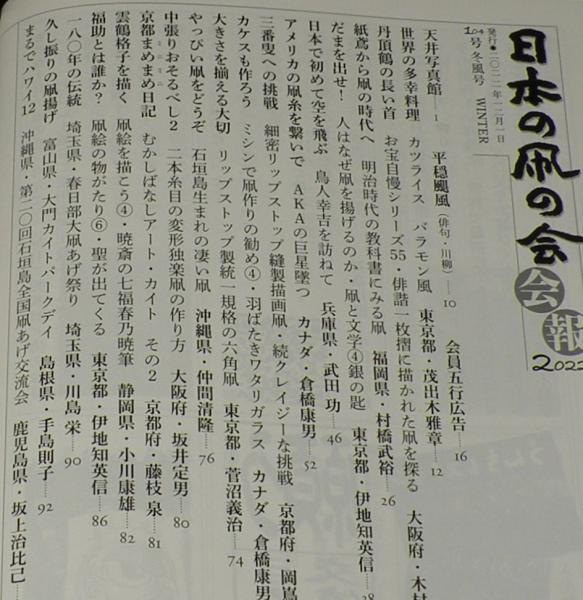 日本の凧の会
会報
2022
104号 冬風号 WINTER
発行●二〇二二年一二月一日
天井写真館……1 平穏颶風(俳句・川柳)……10 会員五行広告……16
世界の多幸料理 カツライス バラモン凧 東京都・茂出木雅章……12
丹頂鶴の長い首 お宝自慢シリーズ55・俳諧一枚摺に描かれた凧を探る 大阪府・木村
紙鳶から凧の時代へ 明治時代の教科書にみる凧 福岡県・村橋武裕……26
だまを出せ! 人はなぜ凧を揚げるのか・凧と文学④銀の匙 東京都・伊地知英信
日本で初めて空を飛ぶ 鳥人幸吉を訪ねて 兵庫県・武田 功……46
アメリカの凧糸を繋いで AKAの巨星墜つ カナダ・倉橋康男……52
三番叟への挑戦 細密リップストップ縫製描画凧・続クレイジーな挑戦 京都府・岡嶌
カケスも作ろう ミシンで凧作りの勧め④・羽ばたきワタリガラス カナダ・倉橋康男
大きさを揃える大切 リップストップ製統一規格の六角凧 東京都・菅沼義治……74
やっぴい凧をどうぞ 石垣島生まれの凄い凧 沖縄県・仲間清隆……76
中張りおそるべし2 二本糸目の変形独楽凧の作り方 大阪府・坂井定男……80
京都まめまめ日記 むかしばなしアート・カイト その2 京都府・藤枝 泉……81
雲鶴格子を描く 凧絵を描こう④・暁斎の七福春乃暁筆 静岡県・小川康雄……82
福助とは誰か? 凧絵の物がたり⑥・聖が出てくる 東京都・伊地知英信……86
一八〇年の伝統 埼玉県・春日部大凧あげ祭り 埼玉県・川島 栄……90
久し振りの凧揚げ 富山県・大門カイトパークデイ 島根県・手島則子……92
まるでハワイ12 沖縄県・第二〇回石垣島全国凧あげ交流会 鹿児島県・坂上治比己……